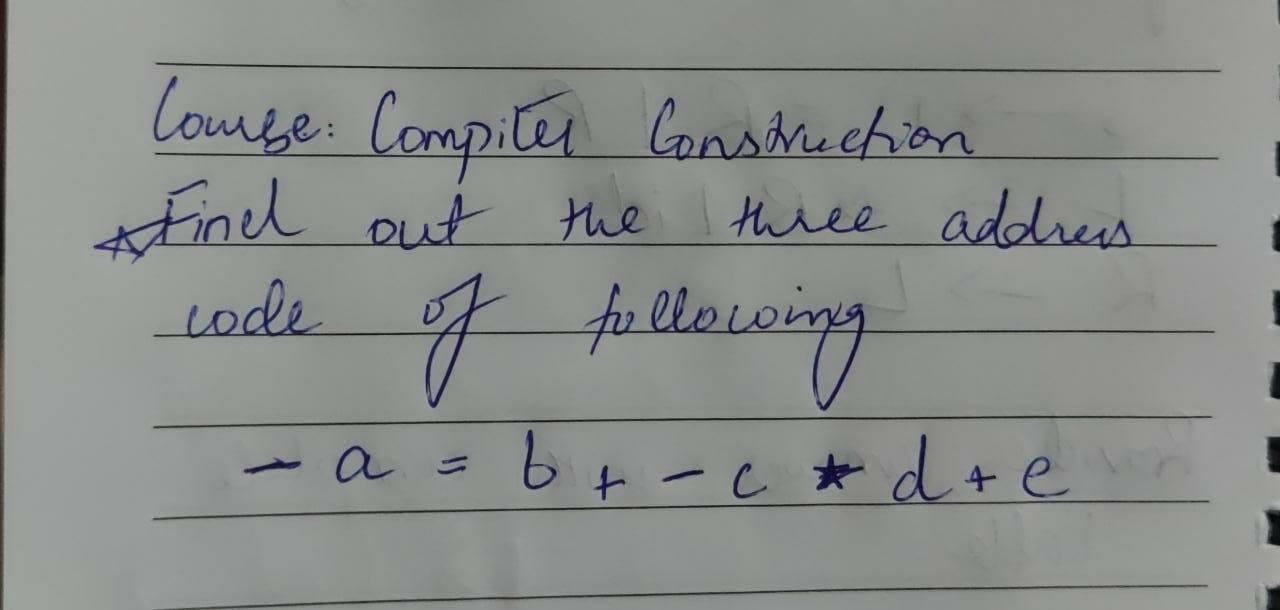 Course: Compiler Construction
Find out the three address
code of following
- a = b + - c * d + e